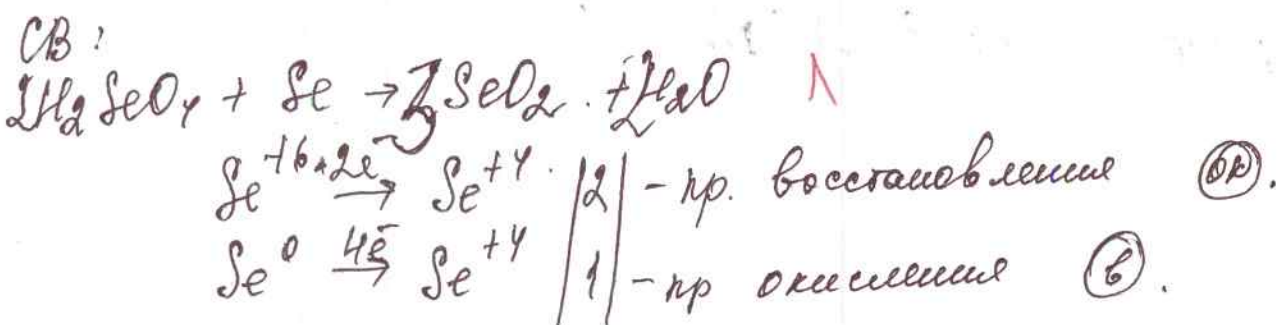 СВ:
2H₂SeO₄ + Se → 3SeO₂ + 2H₂O
Se⁺⁶ +2ē → Se⁺⁴ |2| - пр. восстановления (ок).
Se⁰ 4ē → Se⁺⁴ |1| - пр окисления (в).